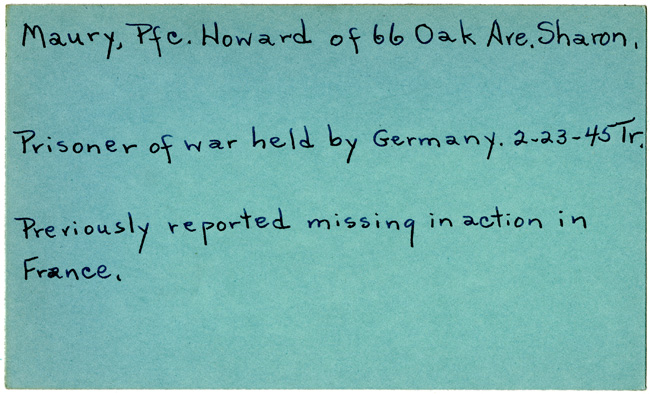 Maury, Pfc. Howard of 66 Oak Ave. Sharon.
Prisoner of war held by Germany. 2-23-45 Tr.
Previously reported missing in action in
France.